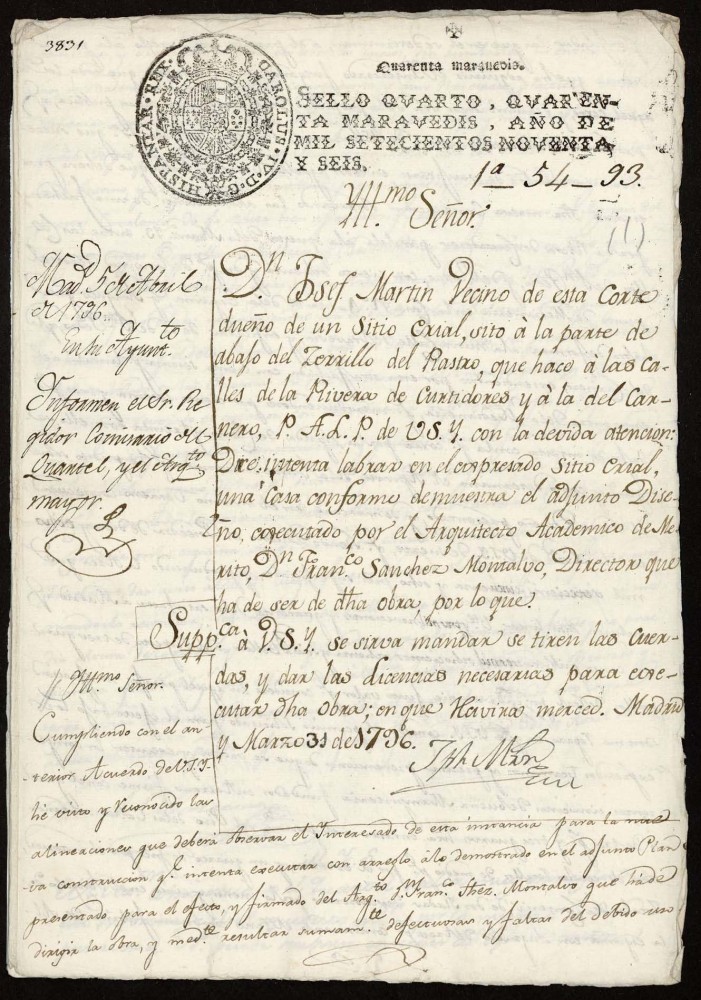 3831
CAROLUS IV D G HISPANIAR REX
Quarenta maravedis.
SELLO QVARTO, QVAREN-
TA MARAVEDIS, AÑO DE
MIL SETECIENTOS NOVENTA
Y SEIS.
1ª-54-93.
Yllmo Señor.
(1)
Dn. Josef Martin Vecino de esta Corte
dueño de un Sitio Erial, sito à la parte de
abaso del Zerrillo del Rastro, que hace à las ca-
lles de la Rivera de Curtidores y à la del Car-
nero, P. A. L. P. de V S. Y. con la devida atencion:
Dice, intenta labrar en el expresado Sitio Erial,
una Casa conforme demuestra el adjunto Dise-
ño, executado por el Arquitecto Academico de Me-
rito, Dn Franco Sanchez Montalvo, Director que
ha de ser de dha obra, por lo que:
Suppca à V. S. Y. se sirva mandar se tiren las Cuer-
das, y dar las Licencias necesarias para exe-
cutar dha Obra; en que Recivirà merced. Madrid
y Marzo 31 de 1796.
Jph Mrn
Madd 5 de Abril
de 1796
En su Ayunto.
Informen el Sr. Re-
gidor Comisario del
Quartel, y el Arqto
mayor
Yllmo Señor.
Cumpliendo con el an-
terior Acuerdo de V.S.Y.
he visto y reconocido las
alineaciones que deberá observar el Interesado de esta instancia para la nue-
va construccion qe. intenta executar con arreglo à lo demostrado en el adjunto Plan
presentado para el efecto, y firmado del Arqto Dn. Franco. Shez. Montalvo que ha de
dirigir la obra, y medte. resultar sumamte. defectuosas y faltas del debido uso